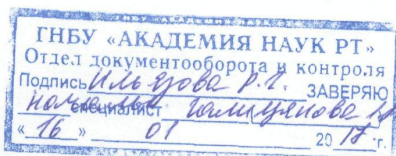 ГНБУ «АКАДЕМИЯ НАУК РТ»
Отдел документооборота и контроля
Подпись Ильязова Р.Г. ЗАВЕРЯЮ
специалист
« 16 » 01 2017 г.